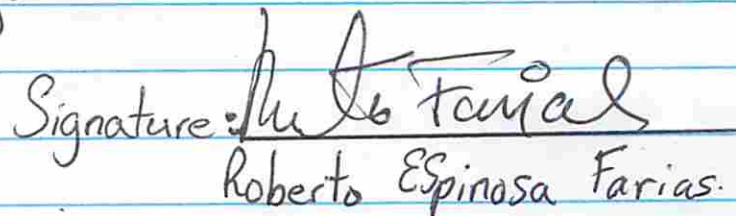 Signature: Roberto Farias
Roberto ESpinosa Farias.